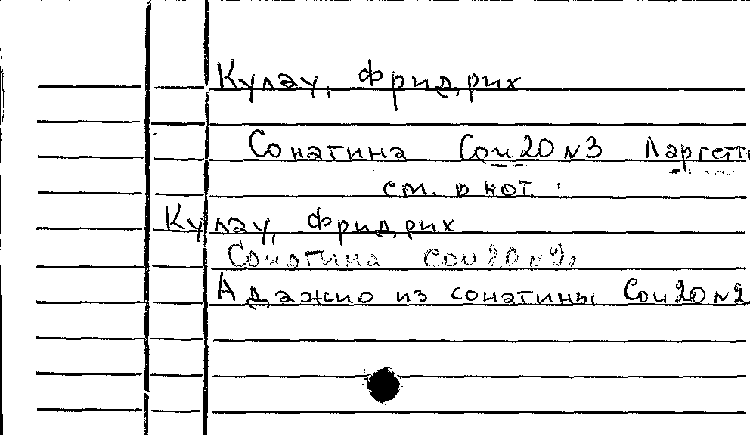 Кулау, Фридрих
Сонатина Соч 20 №3 Ларгетт
см. в нот.
Кулау, Фридрих
Сонатина соч 20 №2
Адажио из сонатины Соч 20 №2